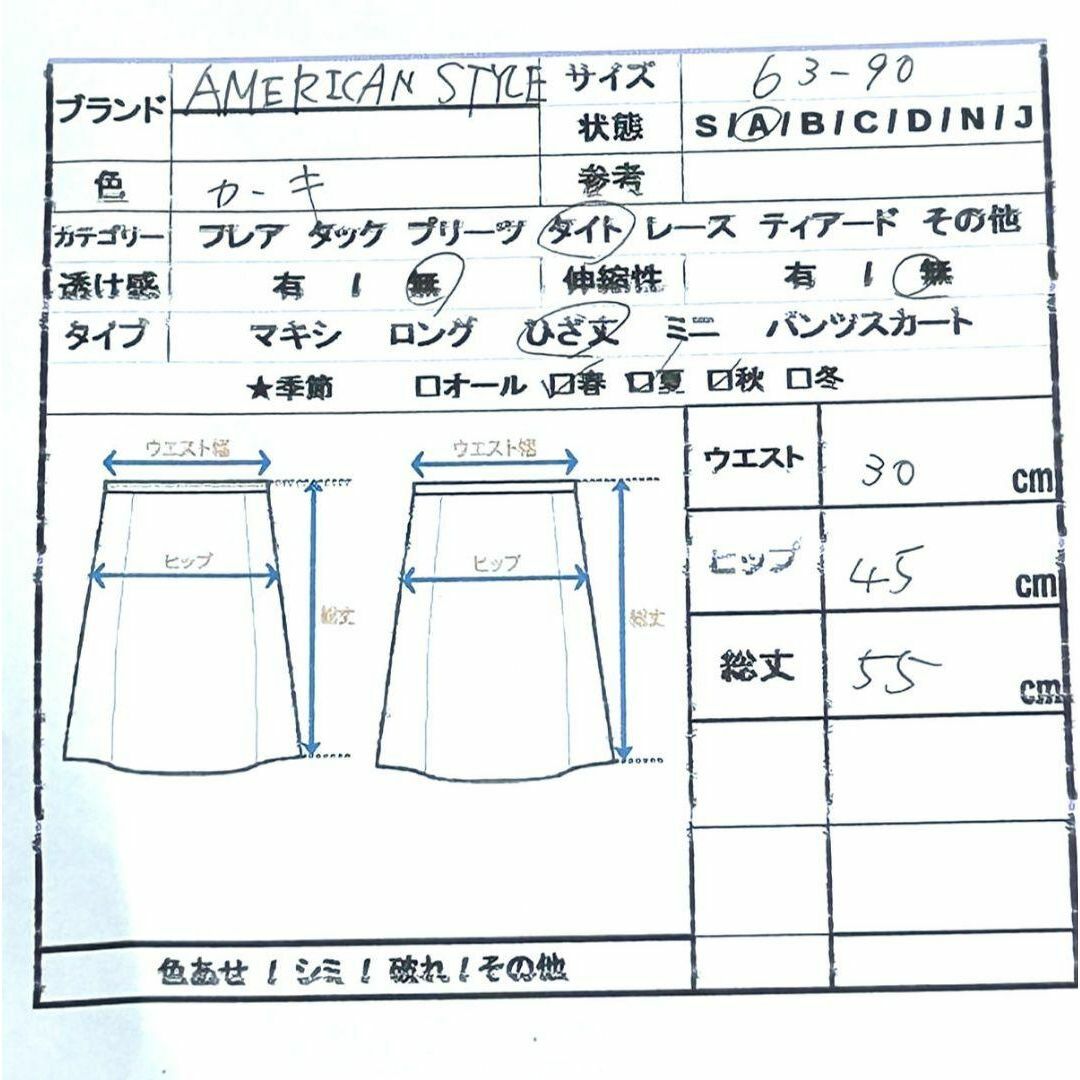 ブランド AMERICAN STYLE サイズ 63-90
状態 S/A/B/C/D/N/J
色 カーキ 参考
カテゴリー フレア タック プリーツ タイト レース ティアード その他
透け感 有 / 無 伸縮性 有 / 無
タイプ マキシ ロング ひざ丈 ミニ パンツスカート
★季節 □オール ☑春 ☑夏 ☑秋 □冬
ウエスト幅 ウエスト幅 ウエスト 30 cm
ヒップ ヒップ ヒップ 45 cm
総丈 総丈 総丈 55 cm
色あせ / シミ / 破れ / その他